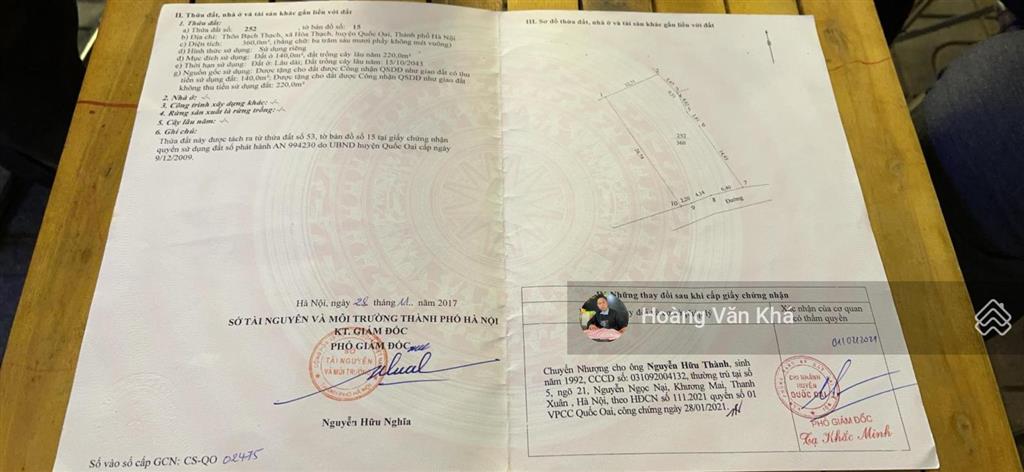 II. Thửa đất, nhà ở và tài sản khác gắn liền với đất
1. Thửa đất:
a) Thửa đất số: 252 , tờ bản đồ số: 15
b) Địa chỉ: Thôn Bạch Thạch, xã Hòa Thạch, huyện Quốc Oai, Thành phố Hà Nội
c) Diện tích: 360,0m², (bằng chữ: ba trăm sáu mươi phẩy không mét vuông)
d) Hình thức sử dụng: Sử dụng riêng
đ) Mục đích sử dụng: Đất ở 140,0m², đất trồng cây lâu năm 220,0m²
e) Thời hạn sử dụng: Đất ở: Lâu dài; Đất trồng cây lâu năm: 15/10/2043
g) Nguồn gốc sử dụng: Được tặng cho đất được Công nhận QSDĐ như giao đất có thu
tiền sử dụng đất: 140,0m²; Được tặng cho đất được Công nhận QSDĐ như giao đất
không thu tiền sử dụng đất: 220,0m²
2. Nhà ở: -/-
3. Công trình xây dựng khác: -/-
4. Rừng sản xuất là rừng trồng: -/-
5. Cây lâu năm: -/-
6. Ghi chú:
Thửa đất này được tách ra từ thửa đất số 53, tờ bản đồ số 15 tại giấy chứng nhận
quyền sử dụng đất số phát hành AN 994230 do UBND huyện Quốc Oai cấp ngày
9/12/2009.
Hà Nội, ngày 28 tháng 11 năm 2017
SỞ TÀI NGUYÊN VÀ MÔI TRƯỜNG THÀNH PHỐ HÀ NỘI
KT. GIÁM ĐỐC
PHÓ GIÁM ĐỐC
SỞ
TÀI NGUYÊN
VÀ MÔI TRƯỜNG
Nguyễn Hữu Nghĩa
Số vào sổ cấp GCN: CS-QO 02475
III. Sơ đồ thửa đất, nhà ở và tài sản khác gắn liền với đất
1
252
360
10 2,20 4,34 6,40 7
9 8
Đường
Những thay đổi sau khi cấp giấy chứng nhận
Xác nhận của cơ quan
có thẩm quyền
Hoàng Văn Khá
Chuyển Nhượng cho ông Nguyễn Hữu Thành, sinh
năm 1992, CCCD số: 031092004132, thường trú tại số
5, ngõ 21, Nguyễn Ngọc Nại, Khương Mai, Thanh
Xuân , Hà Nội, theo HĐCN số 111.2021 quyển số 01
VPCC Quốc Oai, công chứng ngày 28/01/2021.
CHI NHÁNH
HUYỆN
QUỐC OAI
PHÓ GIÁM ĐỐC
Tạ Khắc Minh